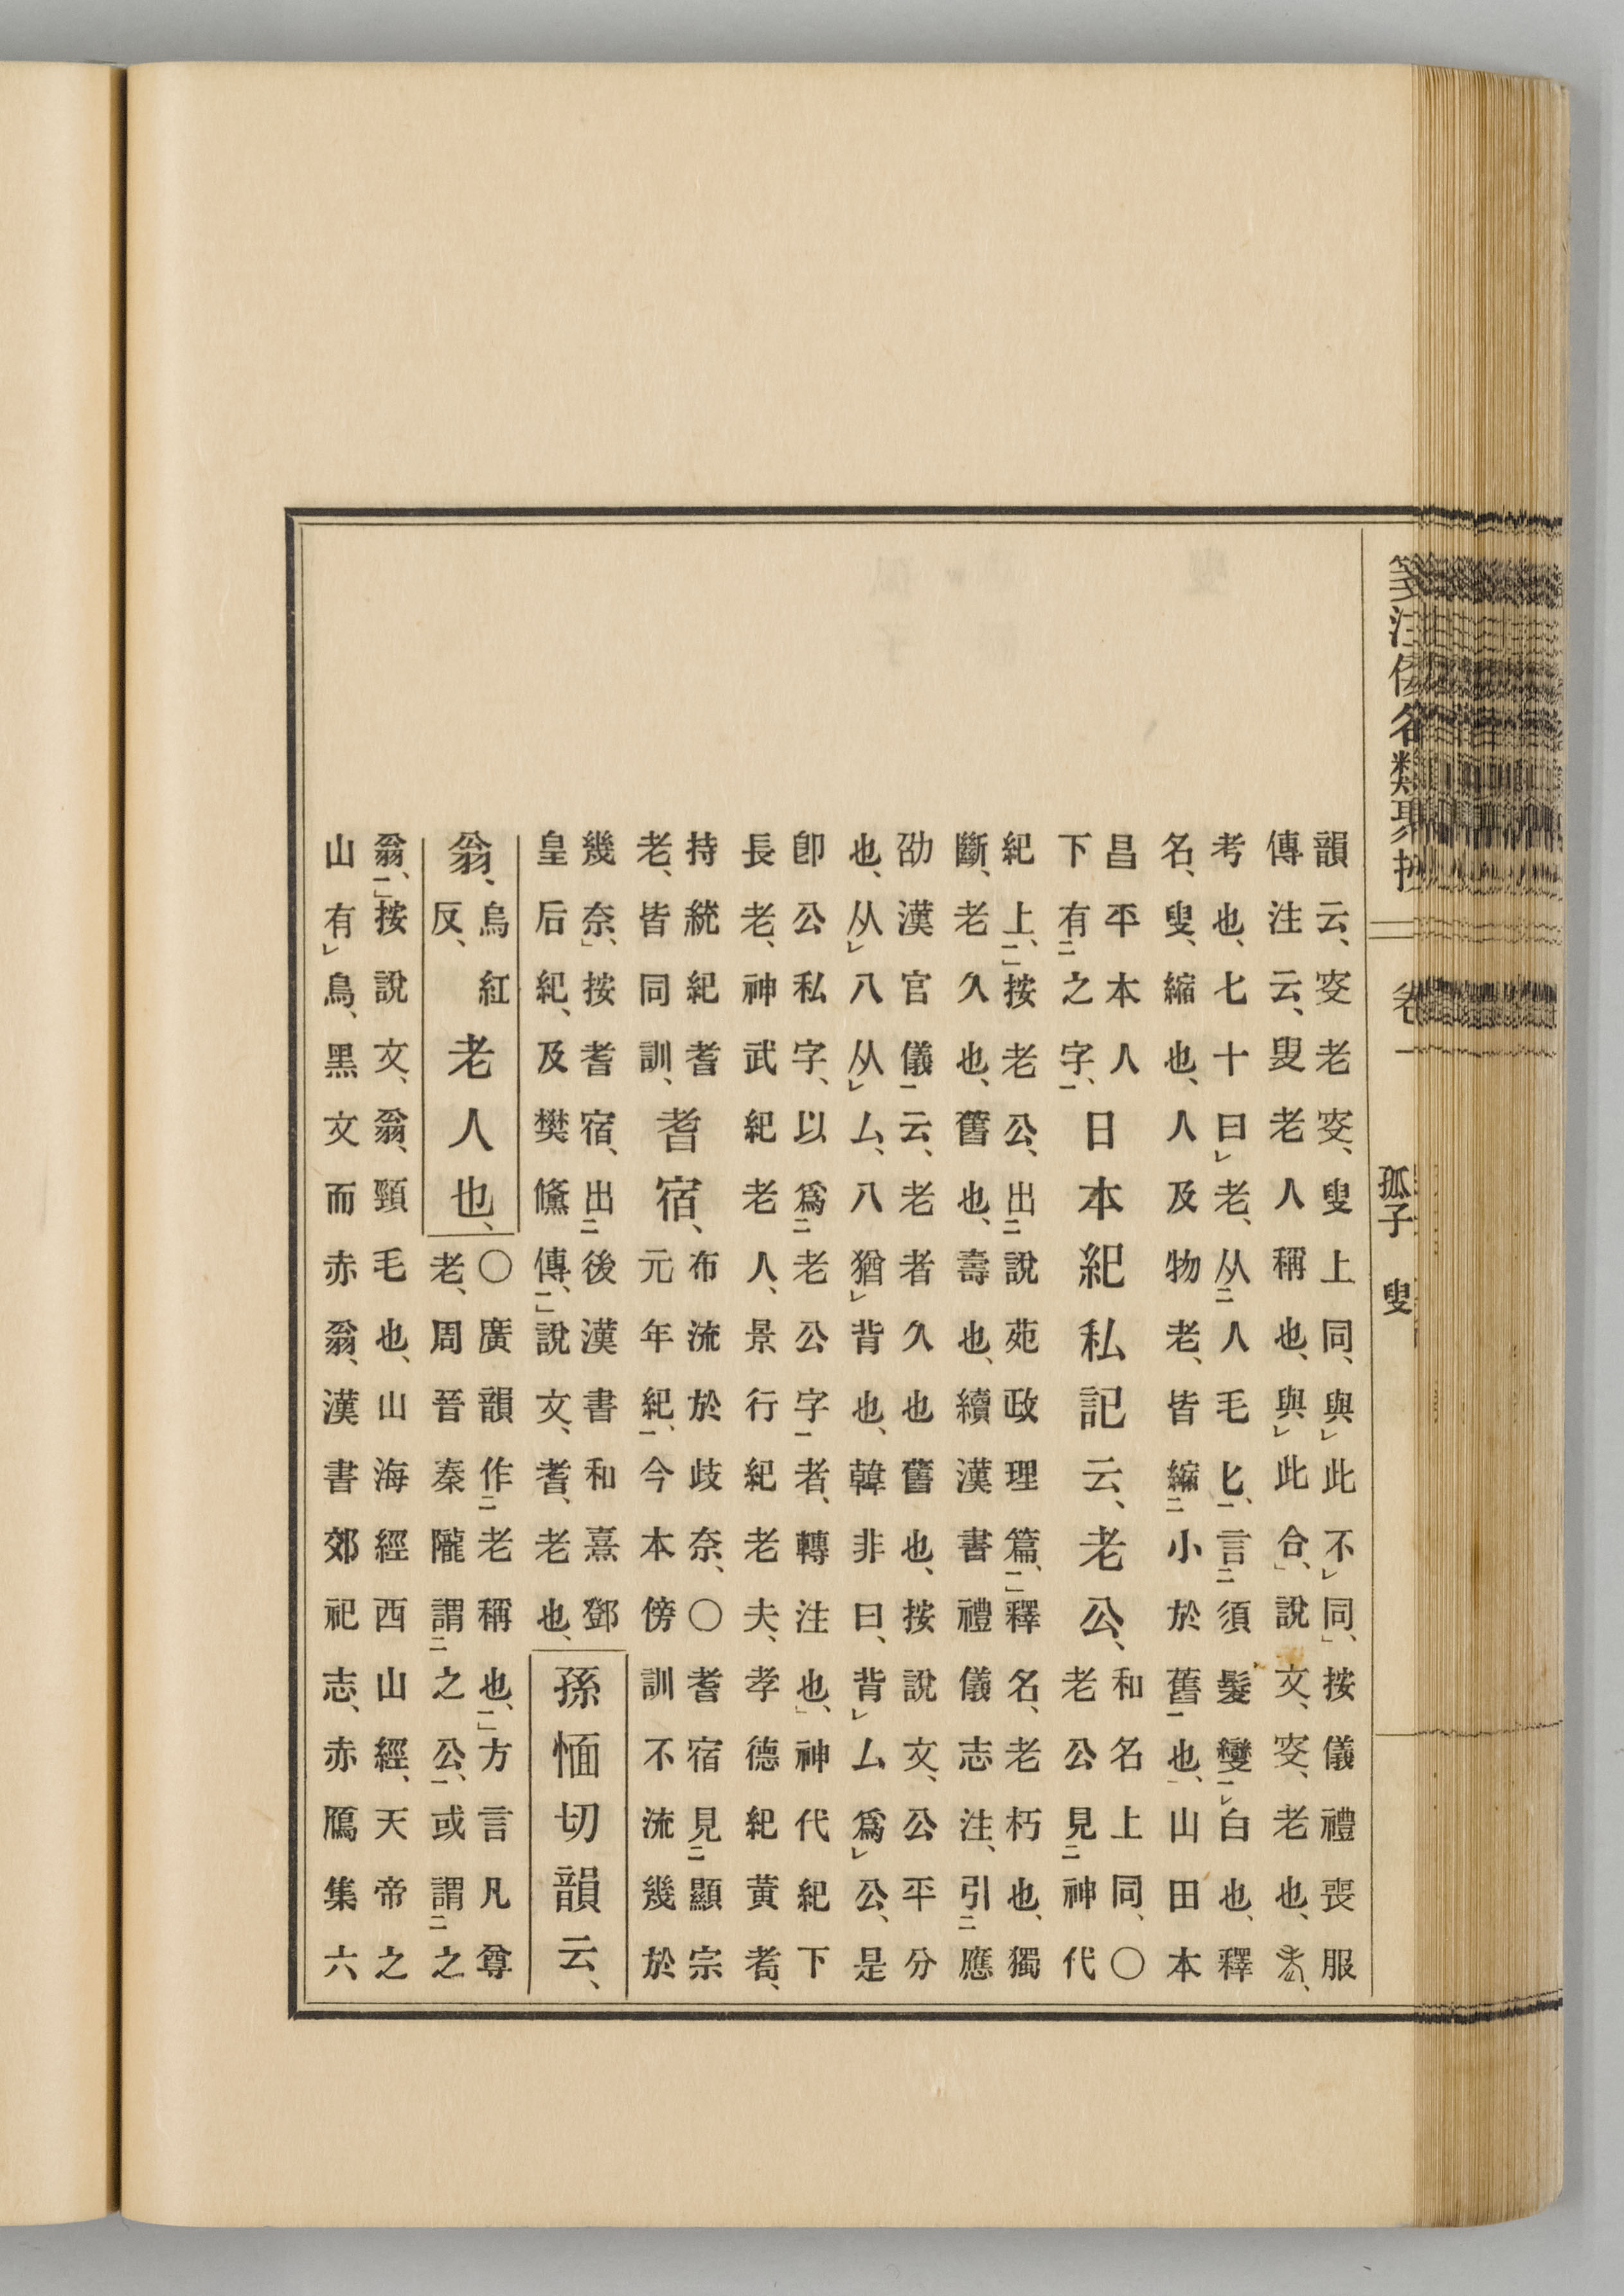 箋注倭名類聚抄 卷一 孤子 叟
韻云、叜老叜、叟上同、與レ此不レ同」、按儀禮喪服
傳注云、叟老人稱也、與レ此合」、說文、叜、老也、老、
考也、七十曰レ老、从二人毛匕一、言二須髮變一レ白也、釋
名、叟、縮也、人及物老、皆縮二小於舊一也、山田本
昌平本人
下有二之字一、
日本紀私記云、老公、
和名上同、○
老公見二神代
紀上一」、按老公、出二說苑政理篇一」、釋名、老朽也、獨
斷、老久也、舊也、壽也、續漢書禮儀志注、引二應
劭漢官儀一云、老者久也舊也、按說文、公平分
也、从レ八从レ厶、八猶レ背也、韓非曰、背レ厶爲レ公、是
卽公私字、以爲二老公字一者、轉注也」、神代紀下
長老、神武紀老人、景行紀老夫、孝德紀黃耇、
持統紀耆
老、皆同訓、
耆宿、
布流於歧奈、○耆宿見二顯宗
元年紀一、今本傍訓不流幾於
幾奈」、按耆宿、出二後漢書和熹鄧
皇后紀、及樊鯈傳一」、說文、耆、老也、
孫愐切韻云、
翁、
烏紅
反、
老人也、
○廣韻作二老稱也一」、方言凡尊
老、周晉秦隴謂二之公一、或謂二之
翁一」、按說文、翁、頸毛也、山海經西山經、天帝之
山有レ鳥、黑文而赤翁、漢書郊祀志、赤鴈集六